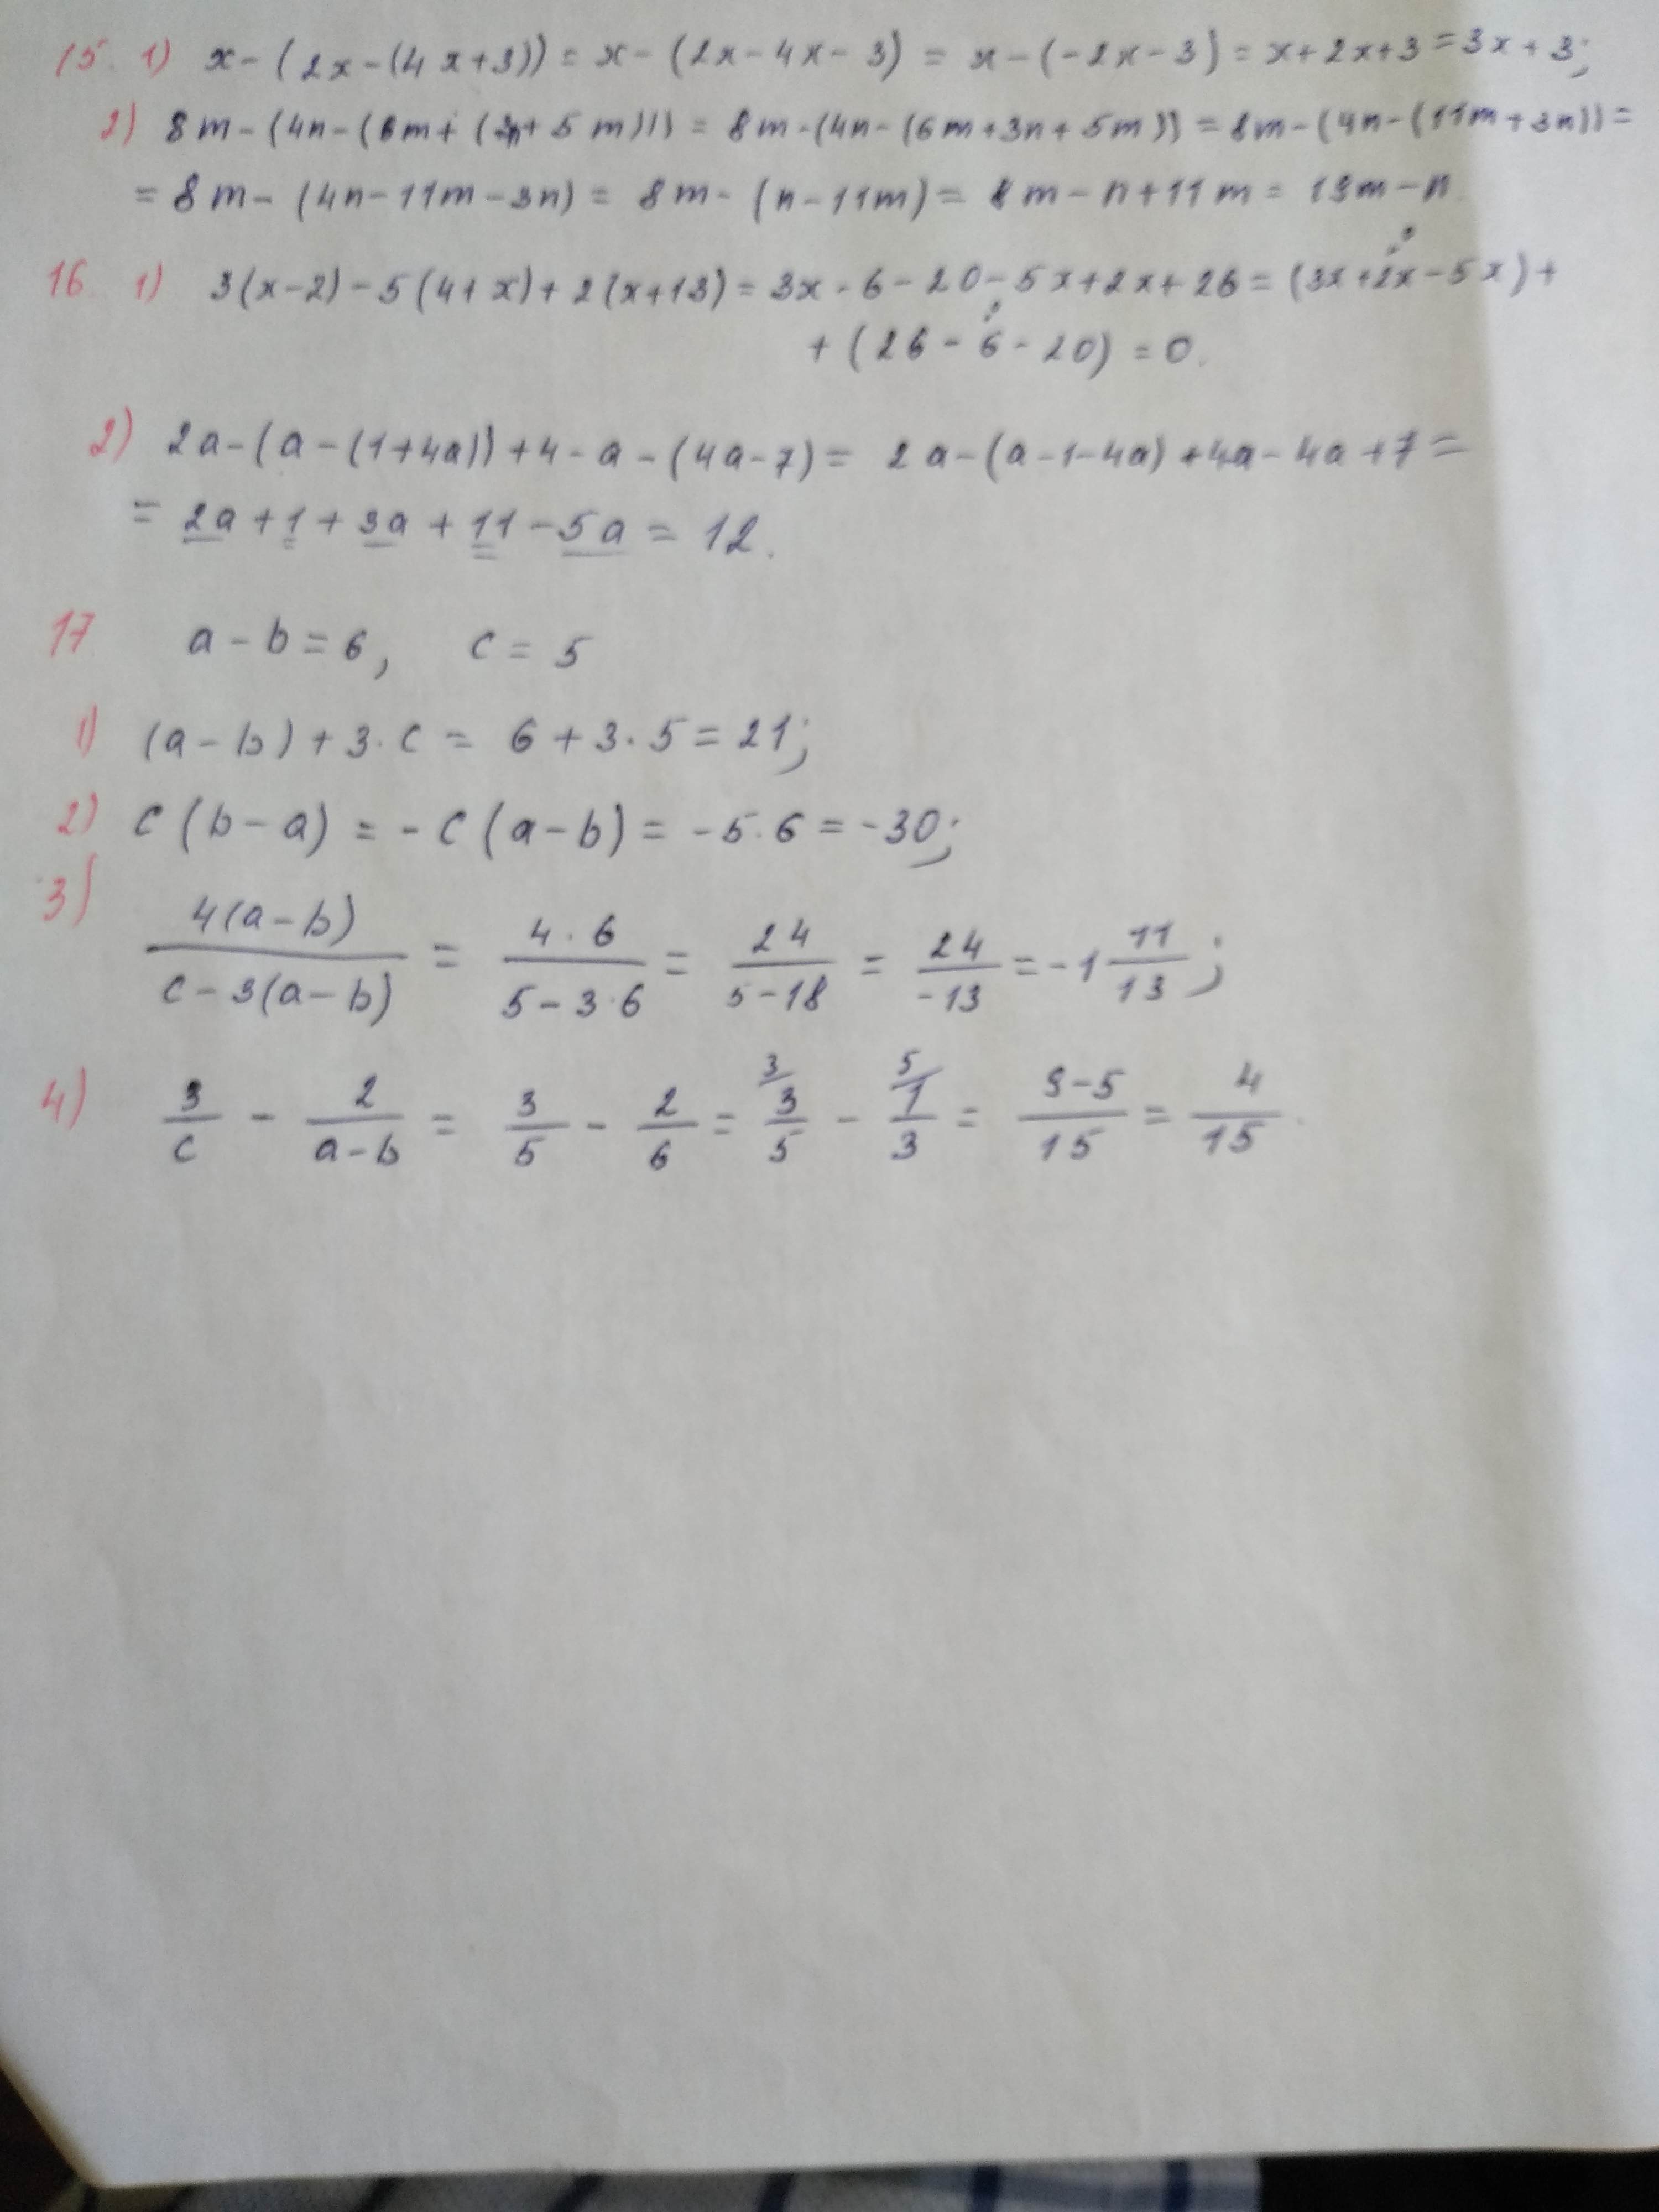 15. 1) x-(2x-(4x+3))=x-(2x-4x-3)=x-(-2x-3)=x+2x+3=3x+3;
2) 8m-(4n-(6m+(3n+5m)))=8m-(4n-(6m+3n+5m))=8m-(4n-(11m+3n))=
=8m-(4n-11m-3n)=8m-(n-11m)=8m-n+11m=19m-n.
16. 1) 3(x-2)-5(4+x)+2(x+13)=3x-6-20-5x+2x+26=(3x+2x-5x)+
+(26-6-20)=0.
2) 2a-(a-(1+4a))+4-a-(4a-7)=2a-(a-1-4a)+4a-4a+7=
=2a+1+3a+11-5a=12.
17. a-b=6, c=5
1) (a-b)+3·c=6+3·5=21;
2) c(b-a)=-c(a-b)=-5·6=-30;
3) 4(a-b)/(c-3(a-b))=4·6/(5-3·6)=24/(5-18)=24/-13=-1 11/13;
4) 3/c-2/(a-b)=3/5-2/6=3/ 3/5-5/ 1/3=(9-5)/15=4/15.